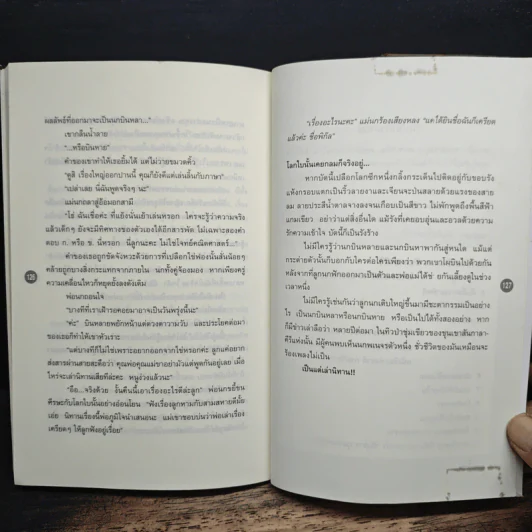 ผลลัพธ์ที่ออกมาจะเป็นนกบินหลา..."
เขากลืนน้ำลาย
"...หรือบินหาย"
คำของเขาทำให้เธอยิ้มได้ แต่ไม่วายขมวดคิ้ว
"ดูสิ เรื่องใหญ่ออกปานนี้ คุณก็ยังดีแต่เล่นลิ้นกับภาษา"
"เปล่าเลย นี่ฉันพูดจริงๆ นะ"
แม่นกถลาสู่อ้อมอกสามี
"โธ่ ฉันเชื่อค่ะ ที่แย้งนั่นเย้าเล่นหรอก ใครจะรู้ว่าความจริง
แล้วเด็กๆ ยังจะมีทิศทางของตัวเองได้อีกสารพัด ไม่เฉพาะสองคำ
ตอบ ก. หรือ ข. นี่หรอก นี่ลูกนะคะ ไม่ใช่โจทย์คณิตศาสตร์..."
คำของเธอถูกขัดจังหวะด้วยการที่เปลือกไข่ฟองนั้นสั่นน้อยๆ
คล้ายถูกบางสิ่งกระแทกจากภายใน นกทั้งคู่จ้องมอง หากเพียงครู่
ความเคลื่อนไหวก็หยุดยั้งลงดังเดิม
พ่อนกถอนใจ
"บางทีที่เราเฝ้ารอคอยมาอาจเป็นวันพรุ่งนี้นะ"
"ค่ะ" บินหลายพยักหน้าแต่ดวงตาวาววับ และประโยคต่อมา
ของเธอก็ทำให้เขาหัวเราะ
"แต่บางทีก็ไม่ใช่เพราะอยากออกจากไข่หรอกค่ะ ลูกแค่อยาก
ส่งสารผ่านสายสะดือว่า คุณพ่อคุณแม่ขาอย่ามัวแต่พูดกันอยู่เลย เมื่อ
ไหร่จะเล่านิทานเสียทีล่ะคะ หนูง่วงแล้วนะ"
"อือ...จริงด้วย งั้นคืนนี้เอาเรื่องอะไรดีล่ะลูก" พ่อนกขยี้ขน
ศีรษะกับโลกใบนั้นอย่างอ่อนโยน "ฟังเรื่องลูกหามกับสามสหายดีมั้ย
เอ่ย นิทานเรื่องนี้พ่อภูมิใจนำเสนอนะ แม่เขาชอบบ่นว่าพ่อเล่าเรื่อง
เครียดๆ ให้ลูกฟังอยู่เรื่อย"
126
"เรื่องอะไรนะคะ" แม่นกร้องเสียงหลง "แค่ได้ยินชื่อฉันก็เครียด
แล้วค่ะ ชื่อพิกล"
โลกใบนั้นเคยกลมก็จริงอยู่...
หากบัดนี้เปลือกโลกซีกหนึ่งกลิ้งกระเด็นไปติดอยู่กับขอบรัง
แห้งกรอบแตกเป็นริ้วลายงาและเจือนจะป่นสลายด้วยแรงของสาย
ลม ลายประสีน้ำตาลจางลงจนเกือบเป็นสีขาว ไม่พักพูดถึงพื้นสีฟ้า
แกมเขียว อย่าว่าแต่สิ่งอื่นใด แม้รังที่เคยอบอุ่นและอวลด้วยความ
รักความเข้าใจ บัดนี้ก็เป็นรังร้าง
ไม่มีใครรู้ว่านกบินหลายและนกบินหาพากันสู่หนใด แม้แต่
กระต่ายตัวนั้นก็บอกกับใครต่อใครเพียงว่า พวกเขาโผบินไปด้วยกัน
หลังจากที่ลูกนกฟักออกมาเป็นตัวและพ่อแม่ได้ช่วยกันเลี้ยงดูในช่วง
เวลาหนึ่ง
ไม่มีใครรู้เช่นกันว่าลูกนกเติบใหญ่ขึ้นมามีชะตากรรมเป็นอย่าง
ไร เป็นนกบินหลาหรือนกบินหาย หรือเป็นไปได้ทั้งสองอย่าง หาก
ก็มีข่าวเล่าลือว่า หลายปีต่อมา ในทิวป่าชุ่มเขียวของขุนเขาสันกาลา-
คีรีแห่งนั้น มีผู้คนพบเห็นนกพเนจรตัวหนึ่ง ชั่วชีวิตของมันเหมือนจะ
ร้องเพลงไม่เป็น
เป็นแต่เล่านิทาน!!
127